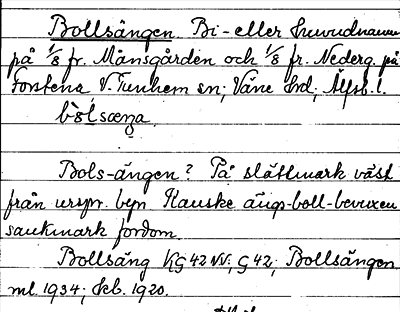 Bollsängen. Bi- eller huvudnamn
på 1/8 fr. Månsgården och 1/8 fr. Nederg. på
Forstena V. Tunhem sn; Väne hrd; Älfsb. l.
bòlsæŋa.
Bols-ängen? På slåttmark väst
från urspr. byn Kauske ängs-boll-bevuxen
sankmark fordom.
Bollsäng KG 42 NV; G 42; Bollsängen
ml. 1934; Seb. 1920.